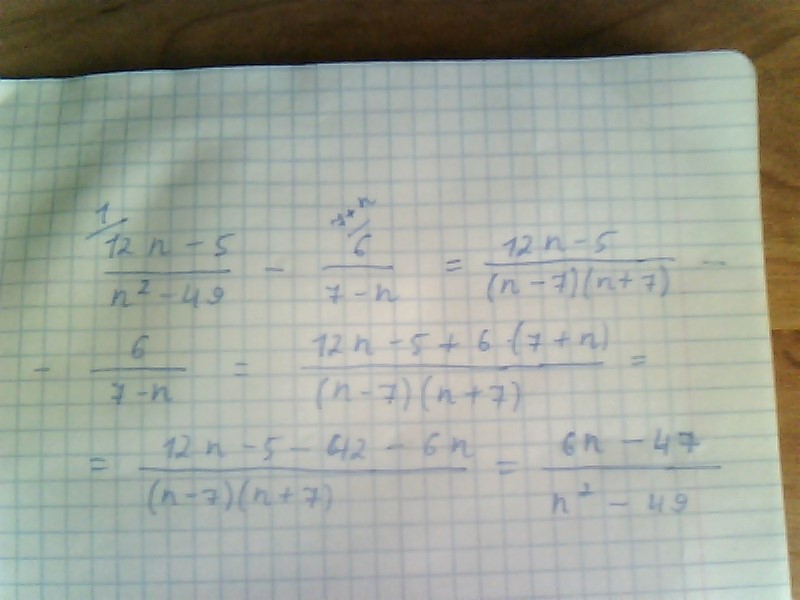 1/ 7+n/
12n-5/n²-49 - 6/7-n = 12n-5/(n-7)(n+7) -
- 6/7-n = 12n-5+6·(7+n)/(n-7)(n+7) =
= 12n-5-42-6n/(n-7)(n+7) = 6n-47/n²-49